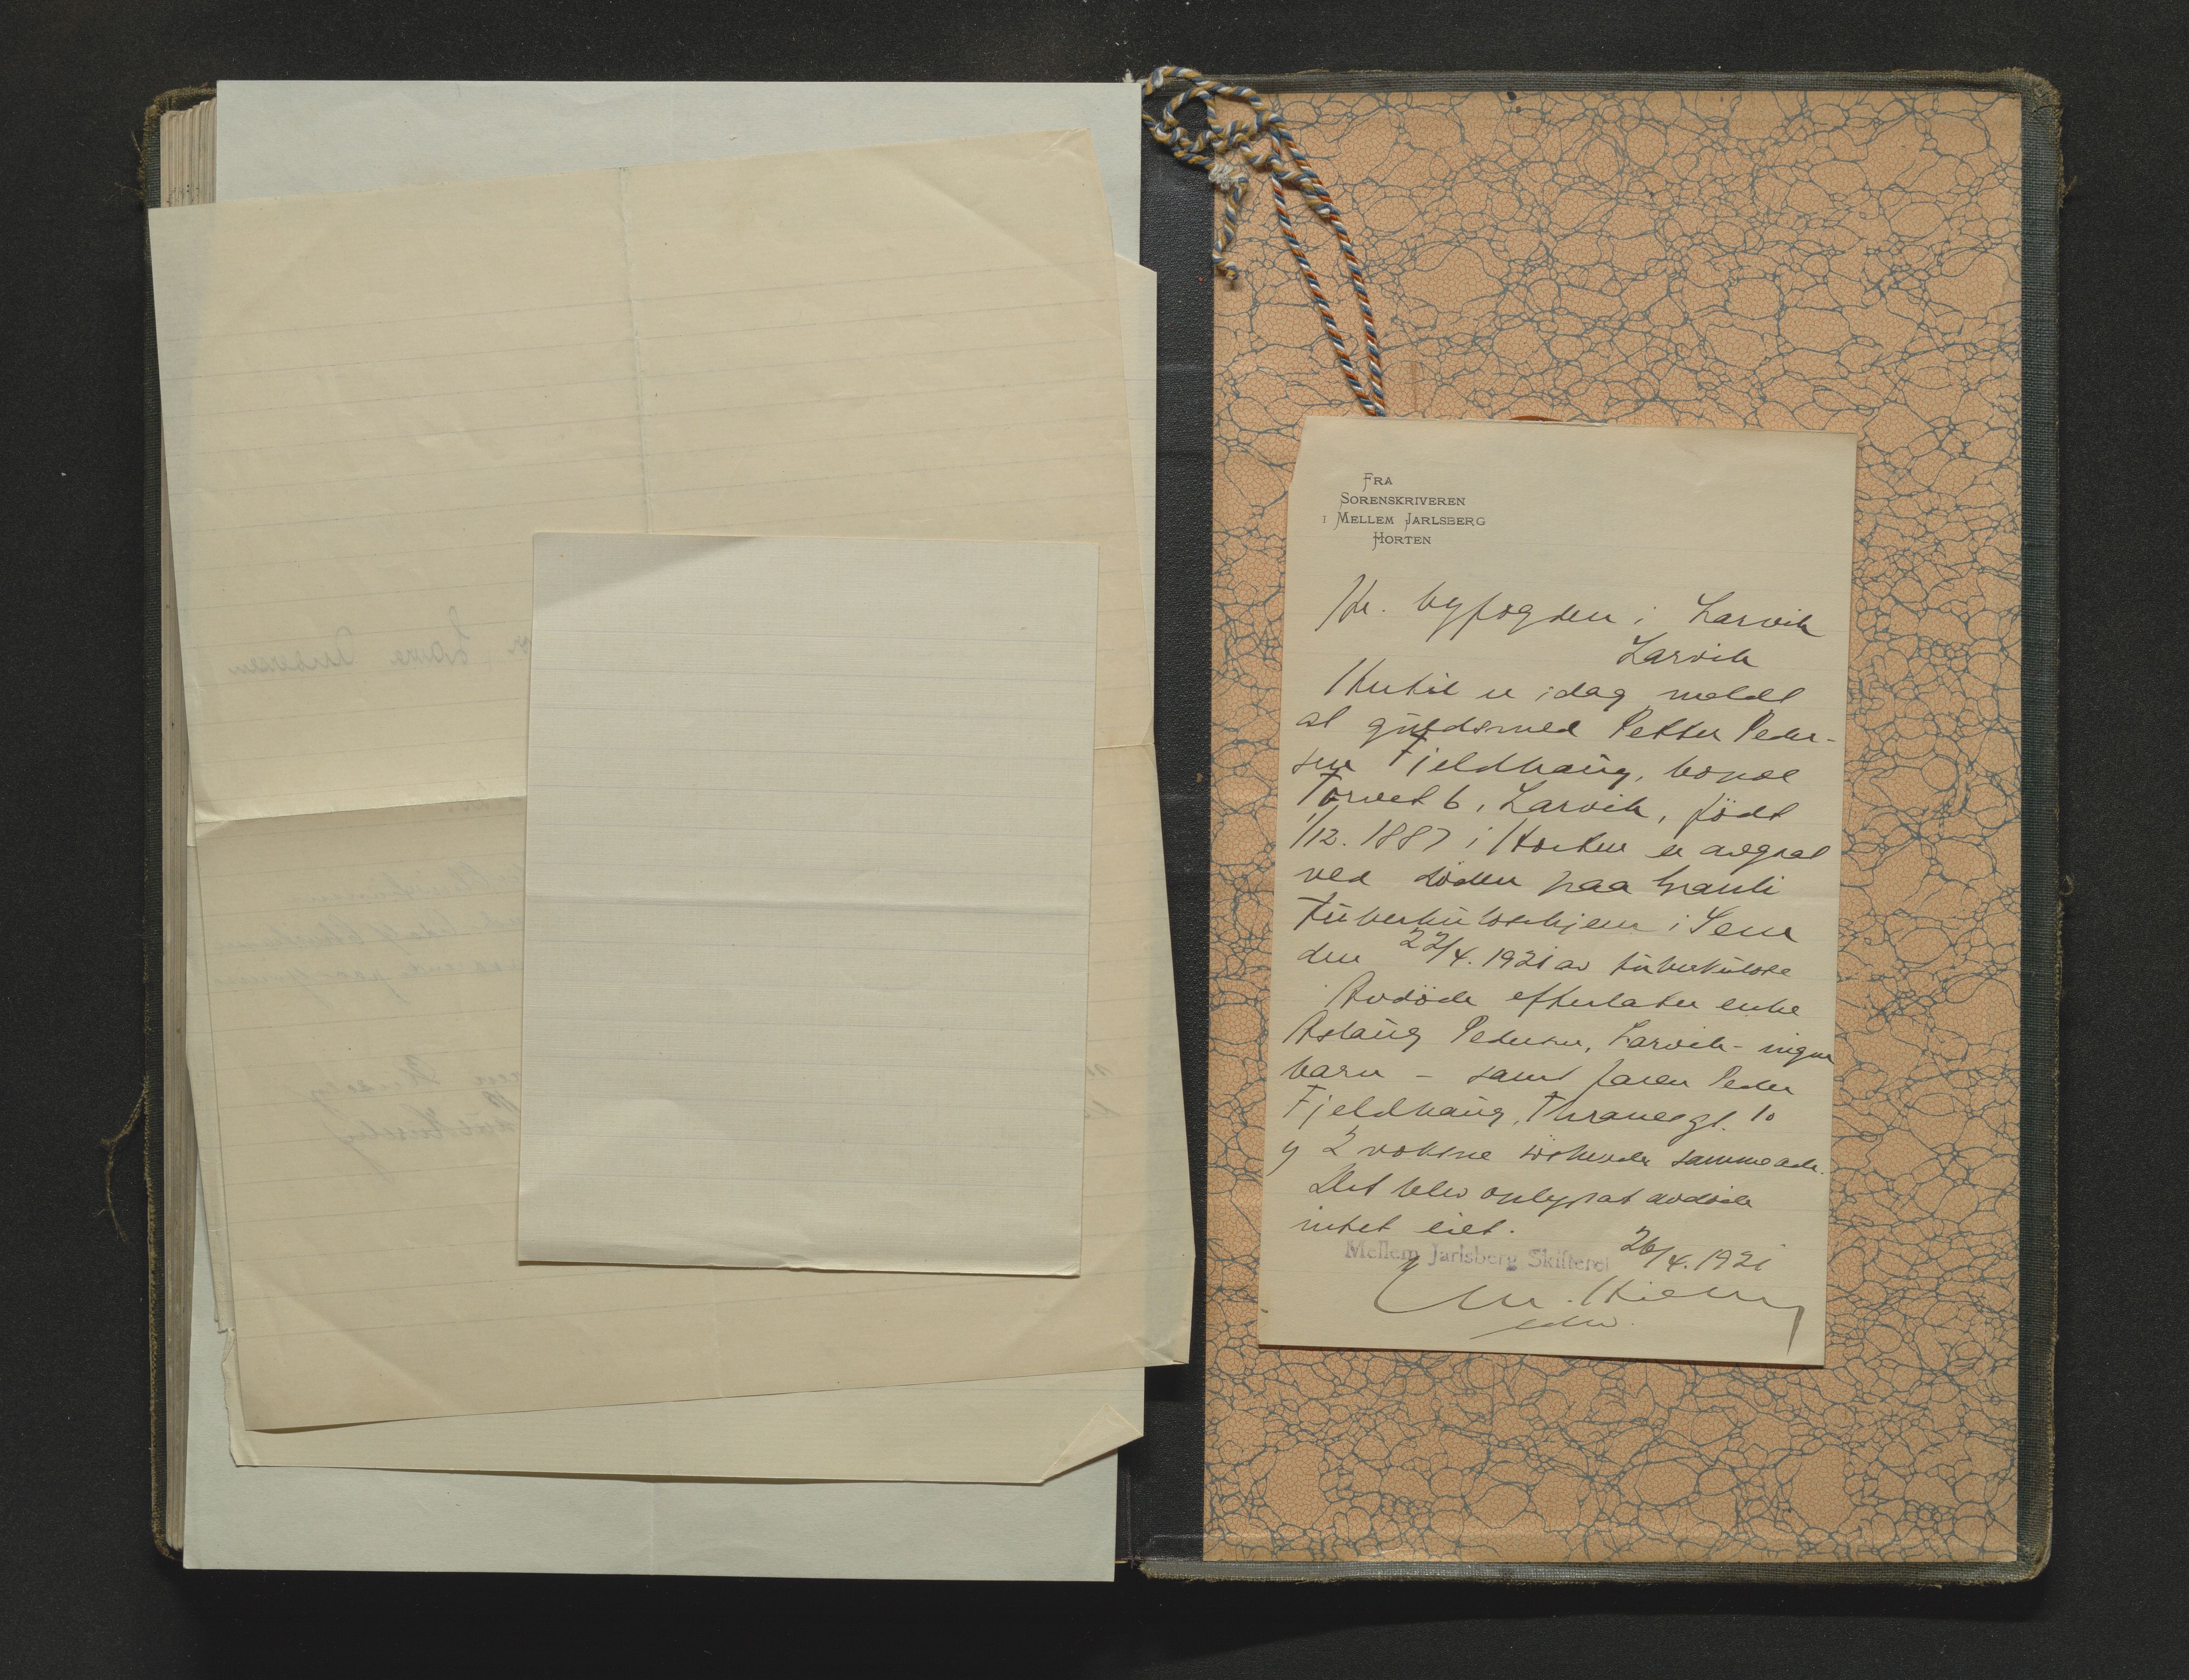 FRA
SORENSKRIVEREN
I MELLEM JARLSBERG
HORTEN
Hr. byfogden i Larvik
Larvik
Hertil er idag meldt
at guldsmed Petter Peder-
sen Fjeldhaug, bopæl
Torvet 6, Larvik, födt
1/12. 1887 i Horten er avgaat
ved döden paa Granli
Tuberkulosehjem i Sem
den 22/4. 1921 av tuberkulose
Avdöde efterlater enke
Aslaug Pedersen, Larvik - ingen
barn - samt faren Peder
Fjeldhaug, Thranesgt. 10
og 2 voksne söskende sammeste.
Det blev oplyst at avdöde
intet eiet.
Mellem Jarlsberg Skifteret 26/4. 1921